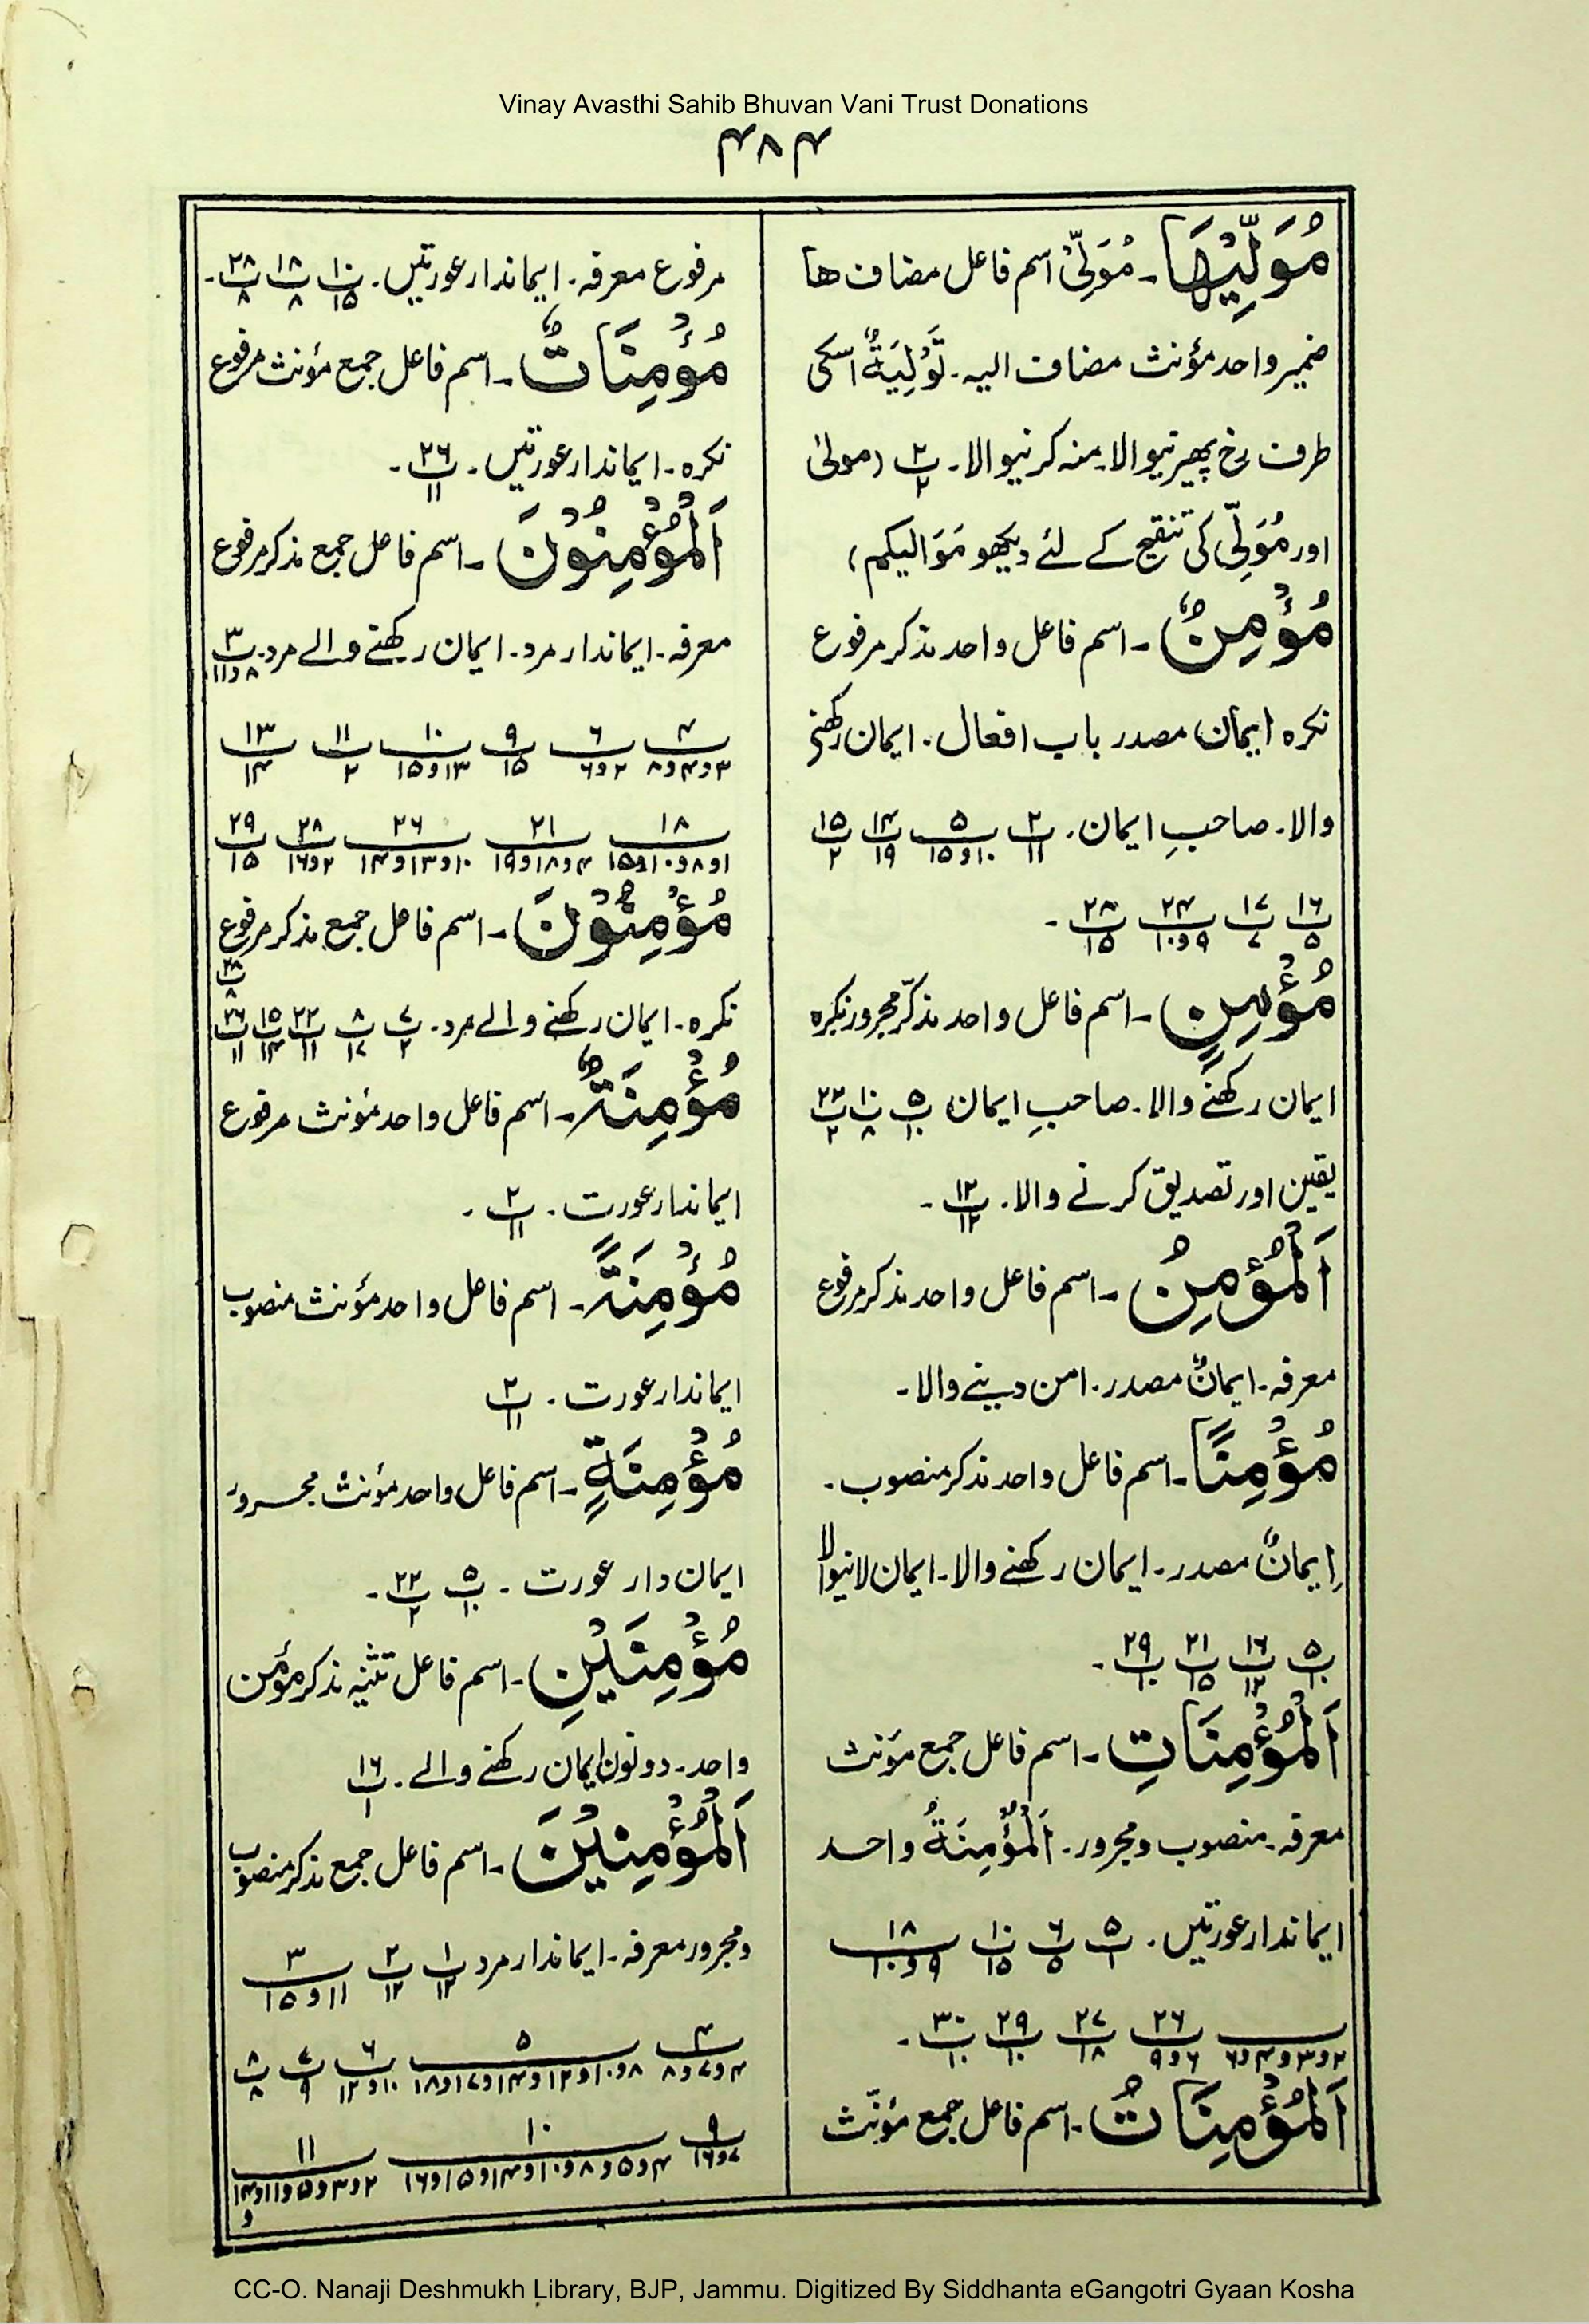 Vinay Avasthi Sahib Bhuvan Vani Trust Donations
۴۸۴
مُوَلِّيْهَا۔ مُوَلِّیْ اسم فاعل مضاف ھا
ضمیر واحد مؤنث مضاف الیہ۔ تَوْلِیَةٌ اسکی
طرف رخ پھیرنیوالا۔ منہ کرنیوالا۔ پ۲/۲ (مولیٰ
اور مُوَلِّی کی تنقیح کے لئے دیکھو مَوَالیکم)
مُؤْمِنٌ۔ اسم فاعل واحد مذکر مرفوع
نکرہ ایمان مصدر باب افعال۔ ایمان رکھنے
والا۔ صاحبِ ایمان۔ پ۲/۱۱ پ۵/۱۰و۱۵ پ۱۴/۱۹ پ۱۵/۲
پ۱۶/۵ پ۱۷/۷ پ۲۴/۹و۱۰ پ۲۸/۱۵۔
مُؤْمِنٍ۔ اسم فاعل واحد مذکّر مجرور نکرہ
ایمان رکھنے والا۔ صاحبِ ایمان پ۵/۱۰ پ۱۰/۸ پ۲۲/۲
یقین اور تصدیق کرنے والا۔ پ۱۲/۱۲۔
اَلْمُؤْمِنُ۔ اسم فاعل واحد مذکر مرفوع
معرفہ۔ ایمانٌ مصدر۔ امن دینے والا۔
مُؤْمِنًا۔ اسم فاعل واحد مذکر منصوب۔
اِیمانٌ مصدر۔ ایمان رکھنے والا۔ ایمان لانیوالا
پ۵/۱۰ پ۱۶/۱۲ پ۲۱/۱۵ پ۲۹/۱۰۔
اَلْمُؤْمِنَاتِ۔ اسم فاعل جمع مؤنث
معرفہ۔ منصوب ومجرور۔ اَلْمُؤْمِنَةُ واحد
ایماندار عورتیں۔ پ۵/۱ پ۶/۵ پ۱۰/۱۵ پ۱۸/۹و۱۰
۲و۳و۴و۶ پ۲۶/۶و۹ پ۲۷/۱۸ پ۲۹/۱۰ پ۳۰/۱۰۔
اَلْمُؤْمِنَاتُ۔ اسم فاعل جمع مؤنّث
مرفوع معرفہ۔ ایماندار عورتیں۔ پ۱۰/۱۵ پ۱۸/۸ پ۲۸/۸۔
مُؤْمِنَاتٌ۔ اسم فاعل جمع مؤنث مرفوع
نکرہ۔ ایماندار عورتیں۔ پ۲۶/۱۱۔
اَلْمُؤْمِنُوْنَ۔ اسم فاعل جمع مذکر مرفوع
معرفہ۔ ایماندار مرد۔ ایمان رکھنے والے مرد۔ پ۳/۸و۱۱
پ۴/۳و۴و۸ پ۶/۲و۶ پ۹/۱۵ پ۱۰/۱۳و۱۵ پ۱۱/۲ پ۱۳/۱۴
پ۱۸/۱و۸و۱۰و۱۵ پ۲۱/۴و۱۸و۱۹ پ۲۶/۱۰و۱۳و۱۴ پ۲۸/۲و۱۶ پ۲۹/۱۵
مُؤْمِنُوْنَ۔ اسم فاعل جمع مذکر مرفوع
نکرہ۔ ایمان رکھنے والے مرد۔ پ۷/۲ پ۸/۱۷ پ۲۲/۱۱ پ۱۵/۱۴ پ۲۶/۱۱ پ۲۸/۸
مُؤْمِنَةٌ۔ اسم فاعل واحد مؤنث مرفوع
ایماندار عورت۔ پ۲/۱۱۔
مُؤْمِنَةً۔ اسم فاعل واحد مؤنث منصوب
ایماندار عورت۔ پ۲/۱۱
مُؤْمِنَةٍ۔ اسم فاعل واحد مؤنث مجرور
ایمان دار عورت۔ پ۵/۱۰ پ۲۲/۲۔
مُؤْمِنَيْنِ۔ اسم فاعل تثنیہ مذکر مؤمن
واحد۔ دونوں ایمان رکھنے والے۔ پ۱۶/۱
اَلْمُؤْمِنِيْنَ۔ اسم فاعل جمع مذکر منصوب
ومجرور معرفہ۔ ایماندار مرد پ۱/۱۲ پ۲/۱۲ پ۳/۱۱و۱۵
پ۴/۴و۷و۸ پ۵/۸و۱۰و۱۲و۱۴و۱۷و۱۸ پ۶/۱۰و۱۲ پ۷/۹ پ۸/۸
پ۹/۷و۱۶ پ۱۰/۴و۵و۸و۱۰و۱۴و۱۵و۱۶ پ۱۱/۲و۳و۵و۱۱و۱۴و
CC-O. Nanaji Deshmukh Library, BJP, Jammu. Digitized By Siddhanta eGangotri Gyaan Kosha